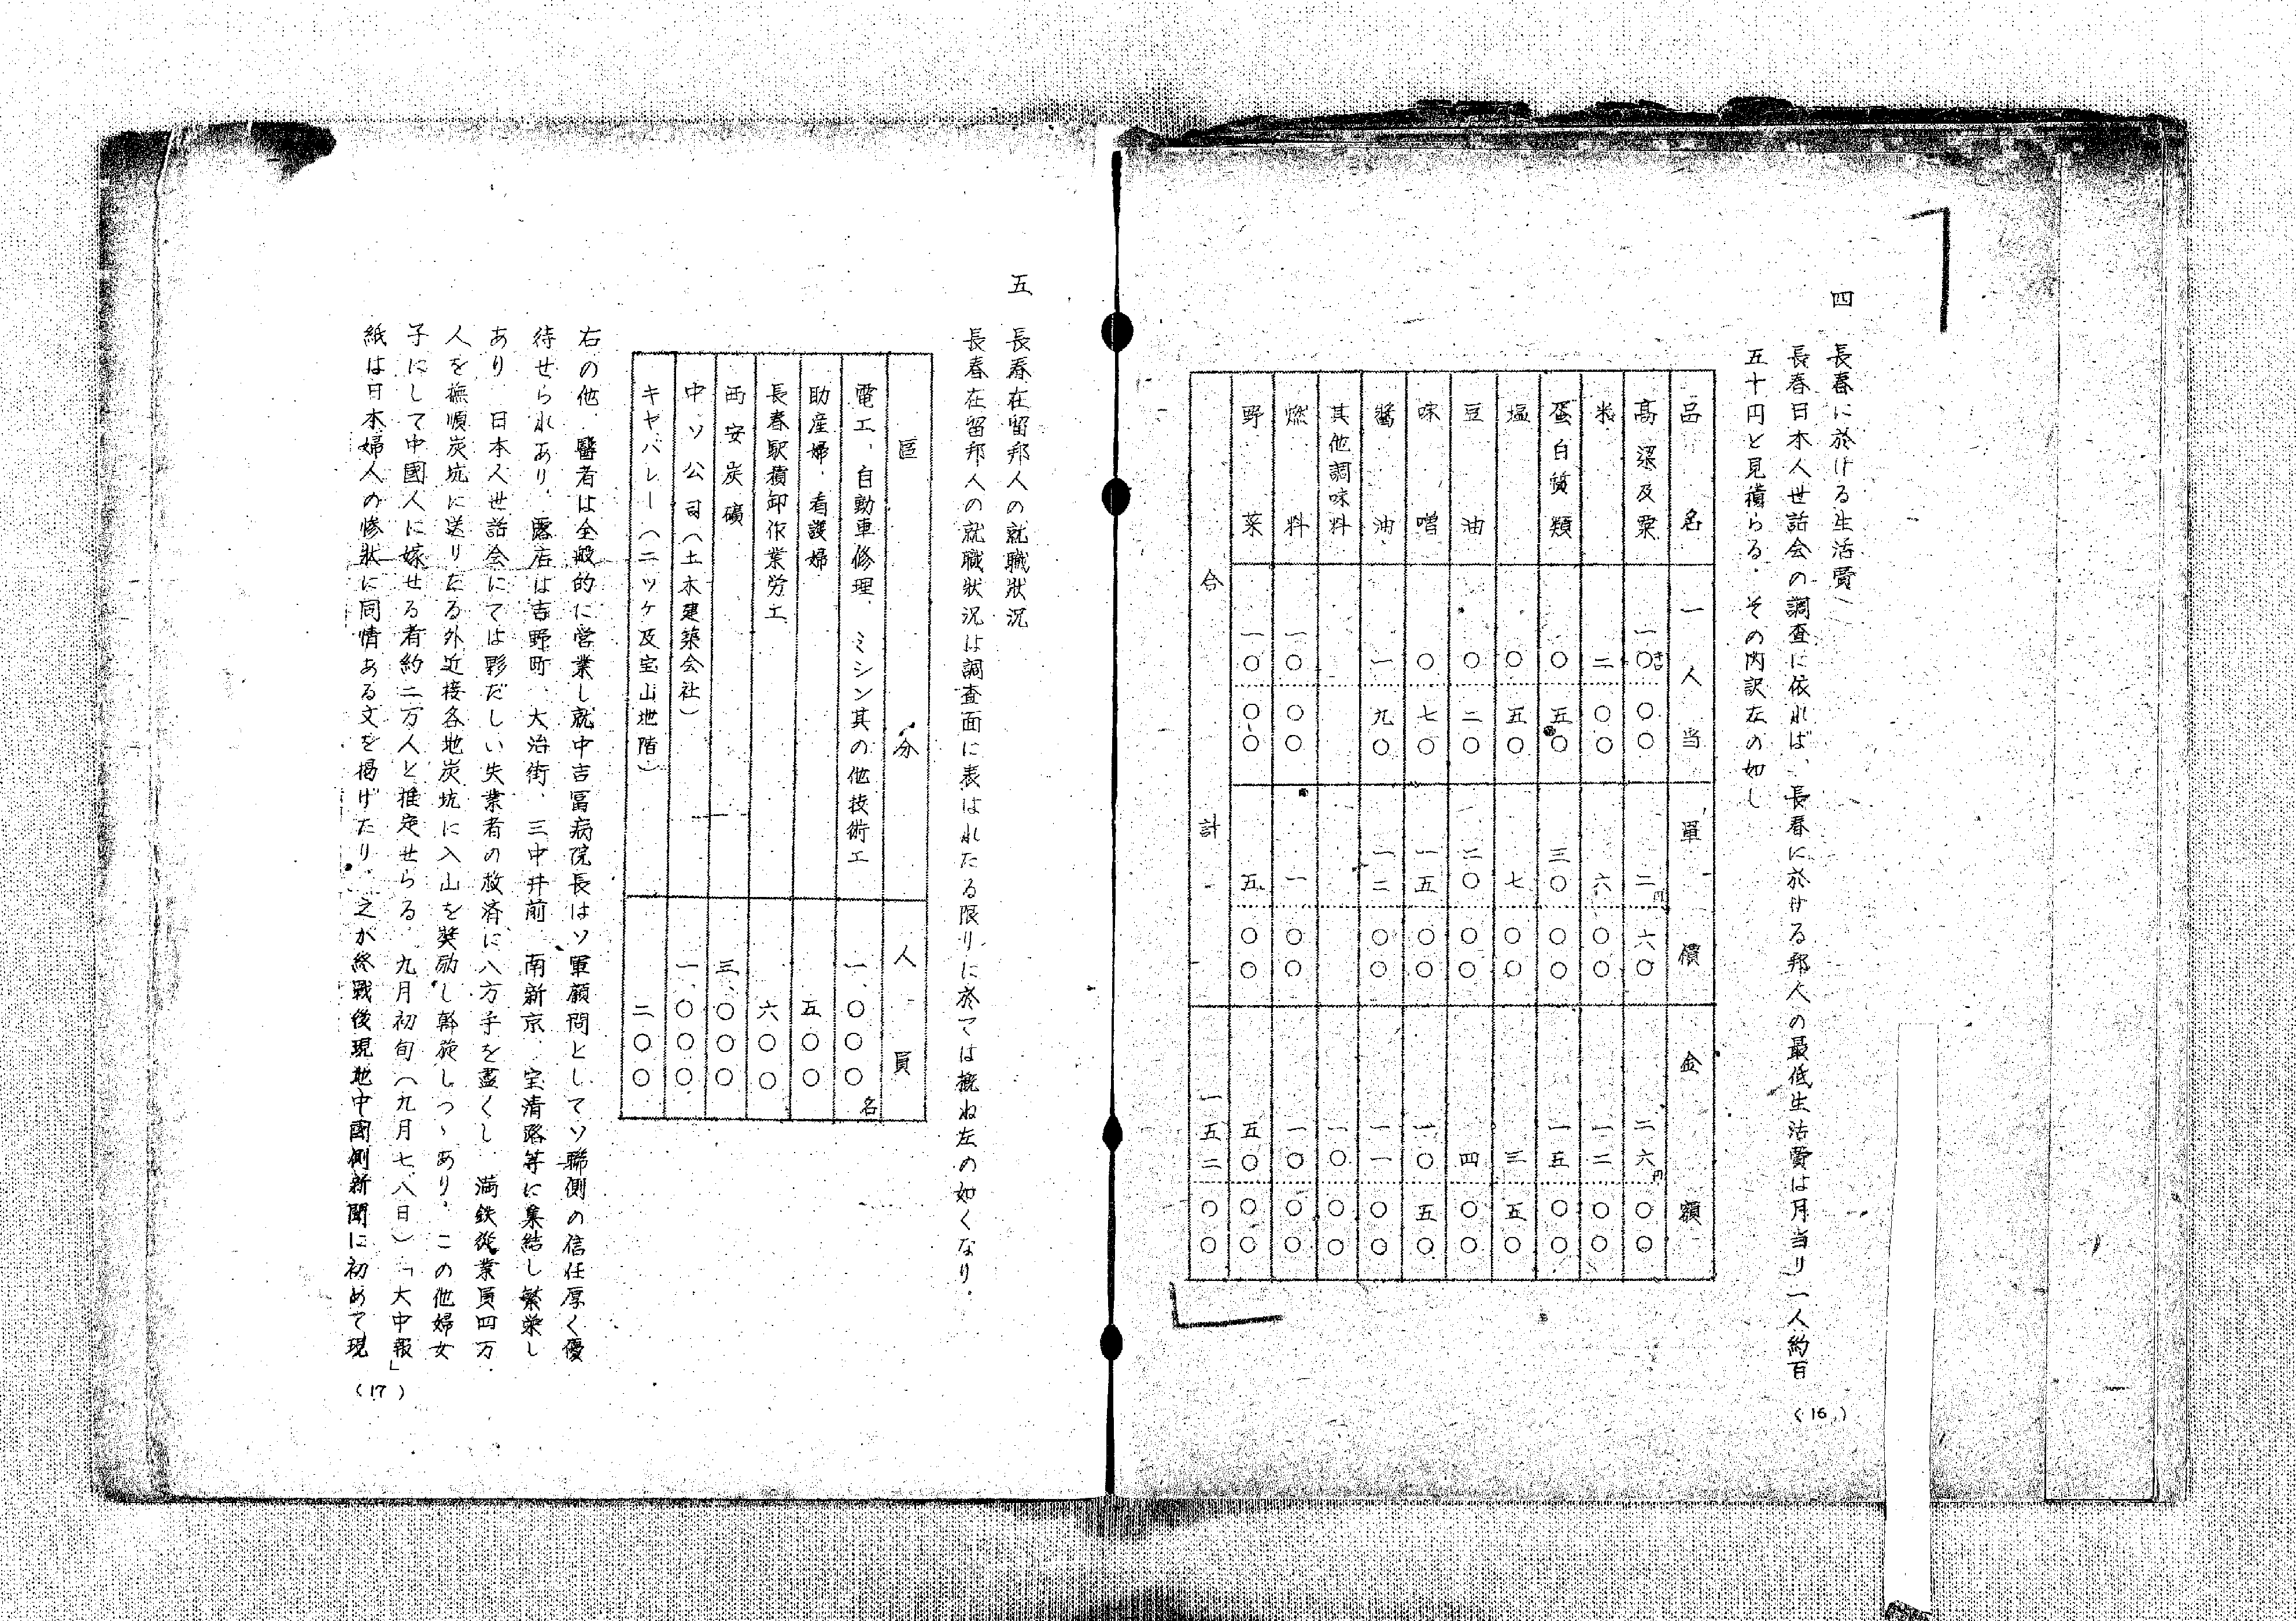 四　長春に於ける生活費
長春日本人世話会の調査に依れば、長春に於ける邦人の最低生活費は月当り一人約百
五十円と見積らる。その内訳左の如し
品名　一人当　單價　金額
高粱及粟　一〇キロ〇〇　二円六〇　二六円〇〇
米　二〇〇　六〇〇　一二〇〇
蛋白質類　〇五〇　三〇〇〇　一五〇〇
塩　〇五〇　七〇〇　三五〇
豆油　〇二〇　二〇〇〇　四〇〇
味噌　〇七〇　一五〇〇　一〇五〇
醬油　一九〇　一二〇〇　一一〇〇
其他調味料　一〇〇〇
燃料　一〇〇〇　一〇〇　一〇〇〇
野菜　一〇〇〇　五〇〇　五〇〇〇
合計　一五二〇〇
(16)
五　長春在留邦人の就職狀况
長春在留邦人の就職狀況は調査面に表はれたる限りに於ては概ね左の如くなり。
區分　人員
電工、自動車修理、ミシン其の他技術工　一、〇〇〇名
助産婦、看護婦　五〇〇
長春駅積卸作業労工　六〇〇
西安炭礦　三、〇〇〇
中ソ公司（土木建築会社）　一、〇〇〇
キャバレー（ニッケ及宝山地階）　二〇〇
右の他、醫者は全般的に営業し就中吉冨病院長はソ軍顧問としてソ聯側の信任厚く優
待せられあり、露店は吉野町、大治街、三中井前、南新京、宝清路等に集結し繁栄し
あり　日本人世話会にては夥だしい失業者の救済に八方手を盡くし　満鉄従業員四万
人を撫順炭坑に送りたる外近接各地炭坑に入山を奬励し斡旋しつゝあり。この他婦女
子にして中國人に嫁せる者約二万人と推定せらる。九月初旬（九月七、八日）「大中報」
紙は日本婦人の惨狀に同情ある文を掲げたり、之か終戰後現地中國側新聞に初めて現
(17)